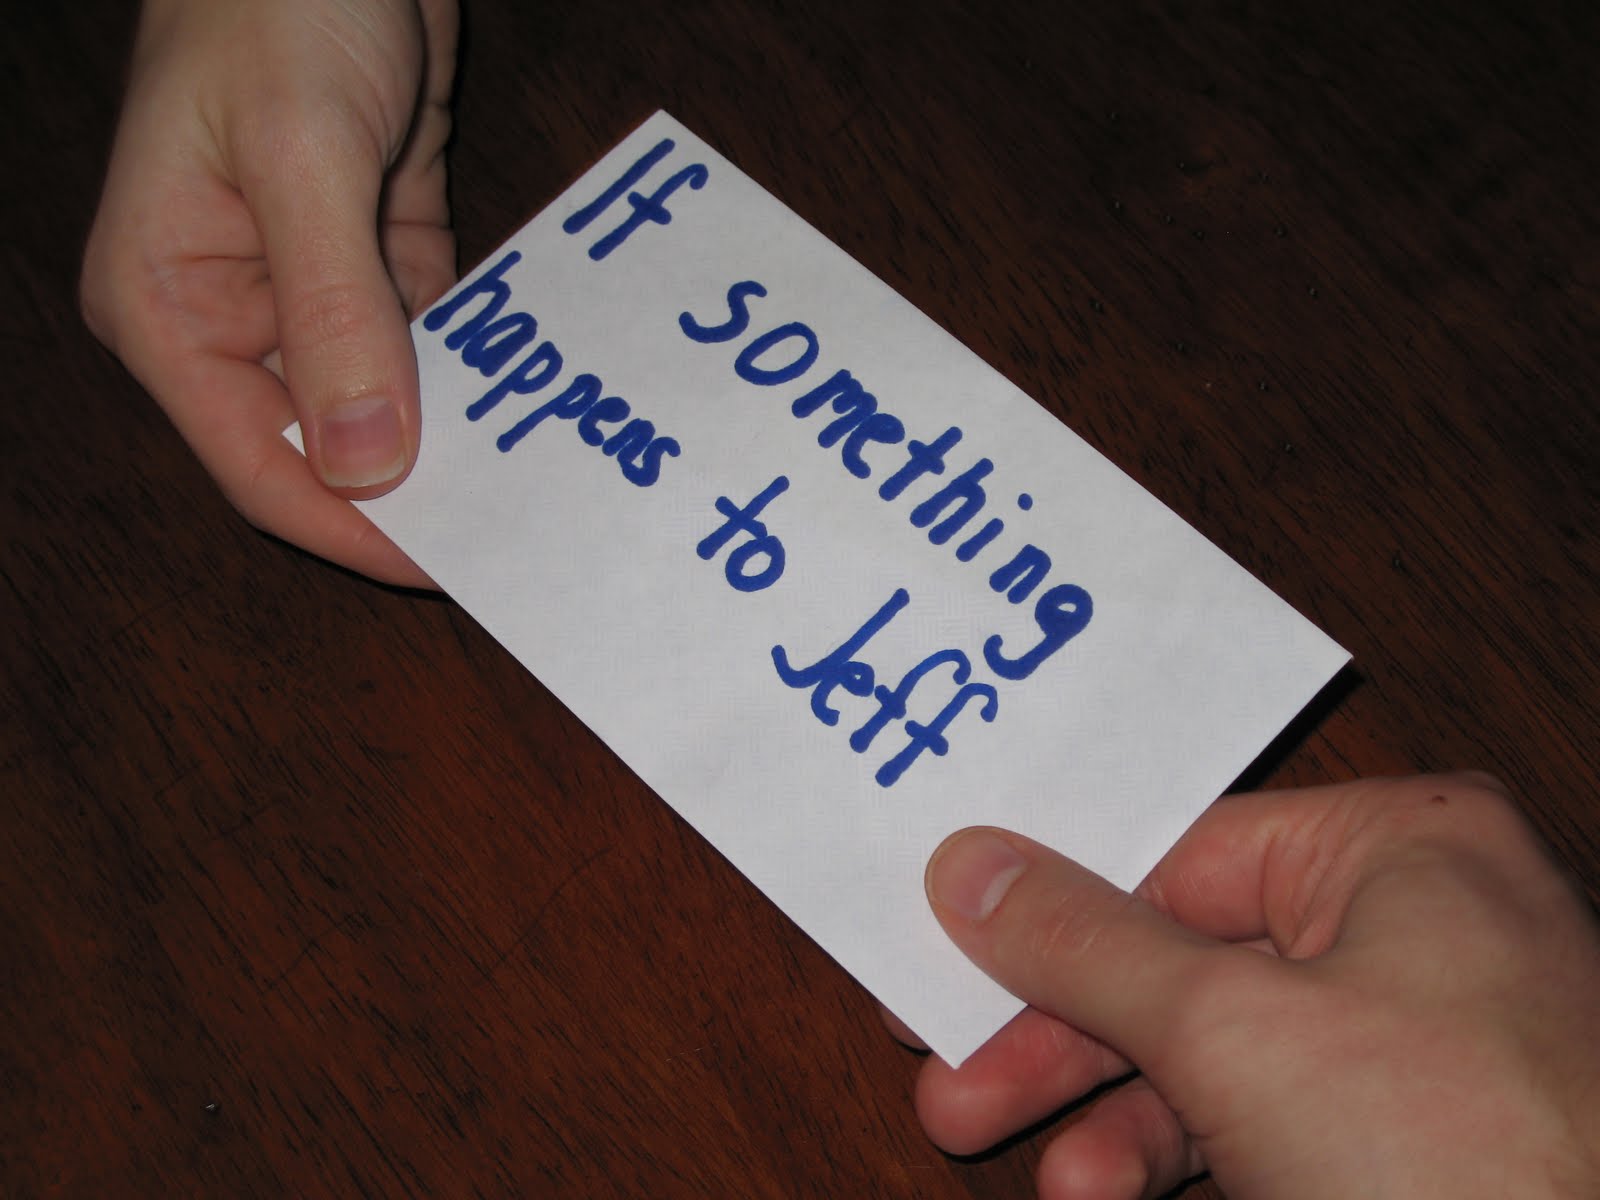 If something
happens to Jeff